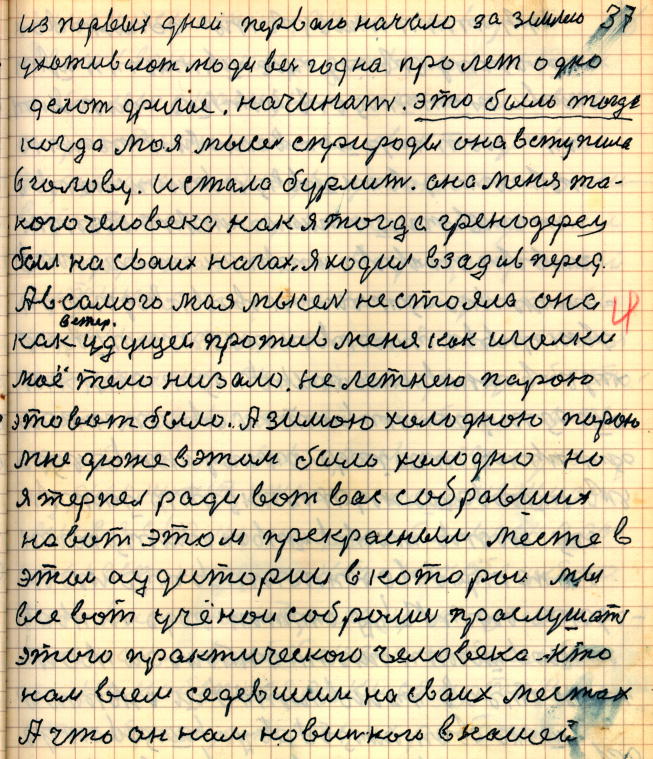 из первых дней первого начало за землею 37
ухаживают люди век года на пролет одно
делют другое. начинают. это было тогда
когда моя мысель с природы она вступила
в голову. и стала бурлит. она меня та-
кого человека как я тогда гренодерец
был на своих нагах. я ходил взад и вперед.
А в самого мая мысел не стояла она
ветер.
как идущей против меня как иголки 4
моё тело низало. не летнею парою
это вот было. А зимою холодною парою
мне дюже в этом было холодно но
я терпел ради вот вас собравших
на вот этом прекрасным месте в
этой аудитории в которой мы
все вот учёной собролис праслушат
этого практического человека кто
нам всем седевшим на сваих местах
А что он нам новинкого в нашей